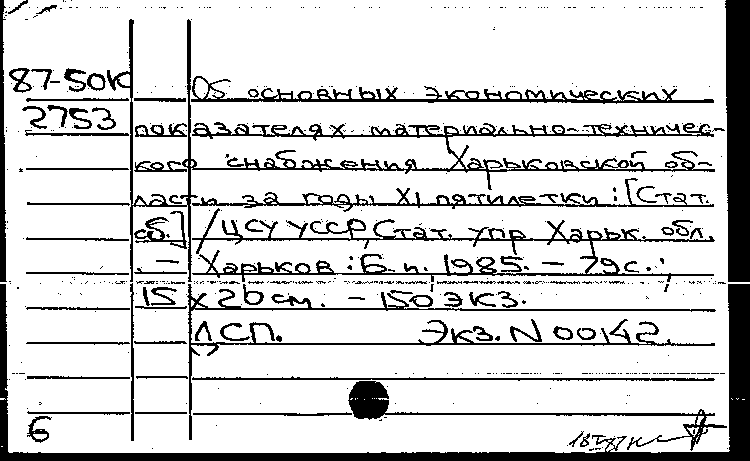 87-50К Об основных экономических
2753 показателях материально-техничес-
кого снабжения Харьковской об-
ласти за годы XI пятилетки : [Стат.
сб.] / ЦСУ УССР, Стат. упр. Харьк. обл.
. — Харьков : Б. и., 1985. — 79 с. ;
15 х 20 см. — 150 экз.
ДСП. Экз. N 00142.
6